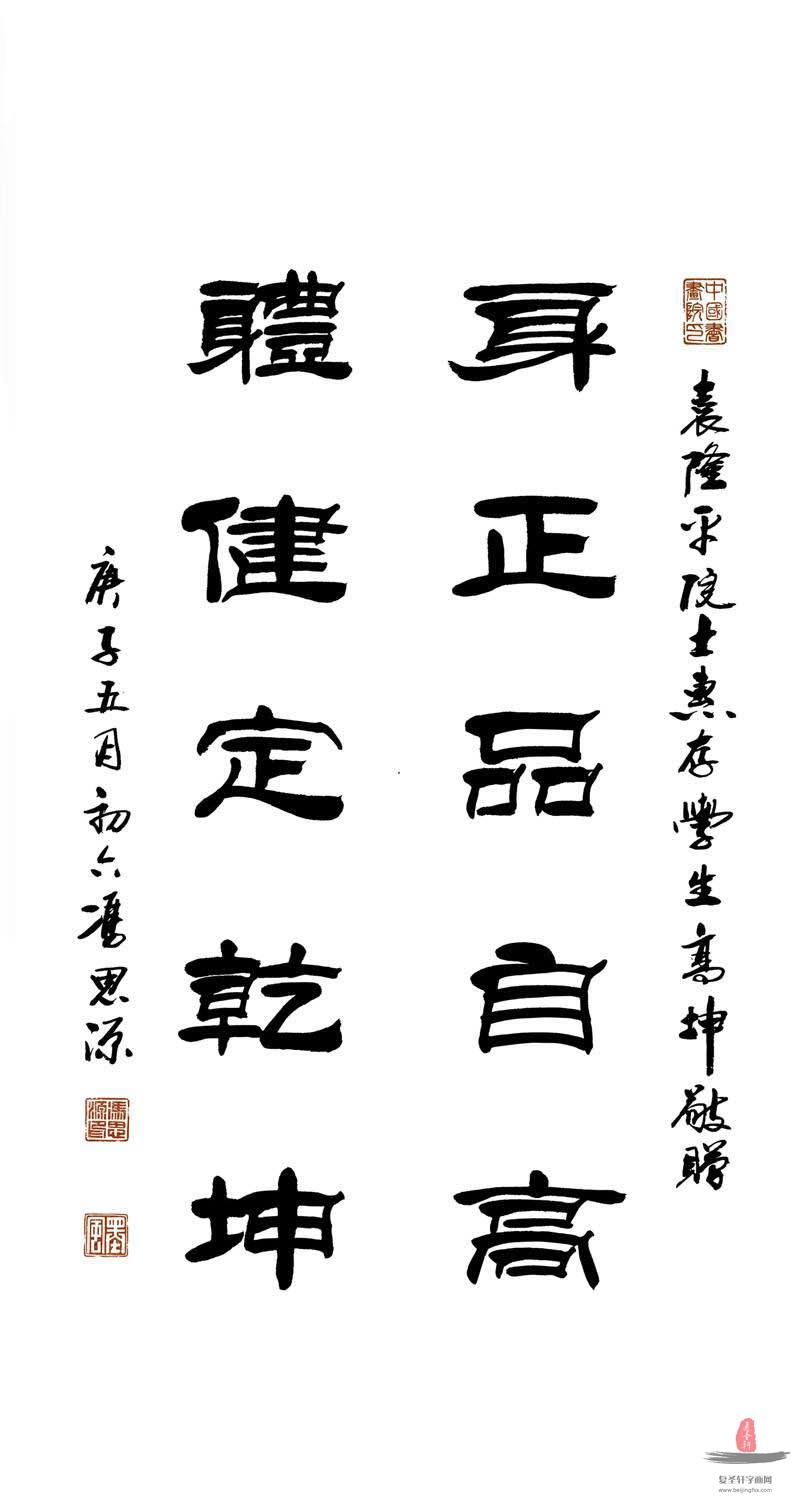 中國書畫院印
袁隆平院士惠存學生高坤敬贈
身正品自高
體健定乾坤
庚子五月初六馮思源
馮思源印
墨風
复圣轩字画网
www.beijingfsx.com